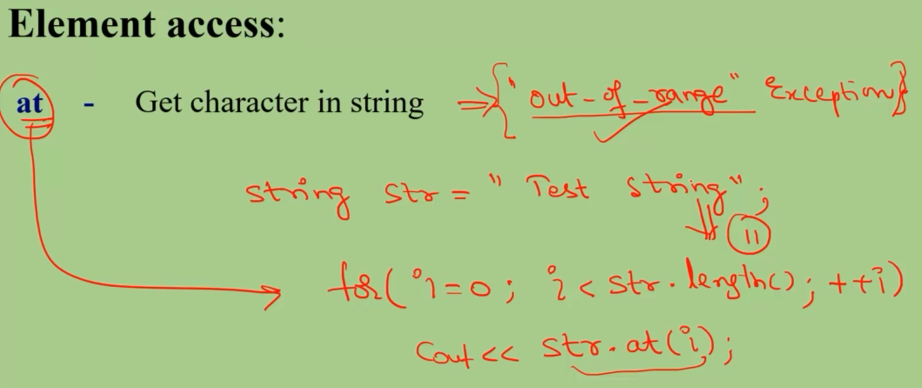 Element access:
at - Get character in string ⇒ {"out-of-range" Exception}
string str = " Test string";
11
for( i=0; i<str.length(); ++i)
cout<< str.at(i);